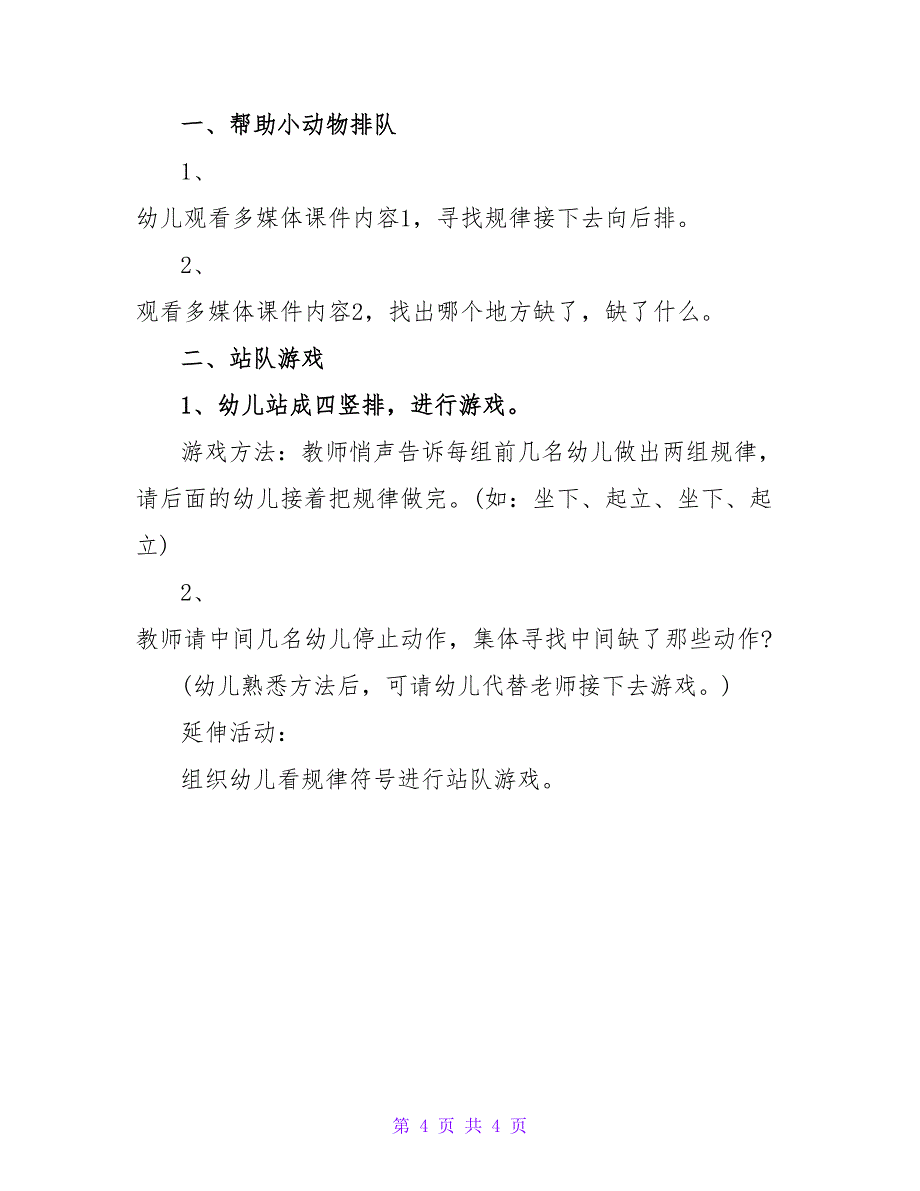 一、帮助小动物排队
1、
幼儿观看多媒体课件内容1，寻找规律接下去向后排。
2、
观看多媒体课件内容2，找出哪个地方缺了，缺了什么。
二、站队游戏
1、幼儿站成四竖排，进行游戏。
游戏方法：教师悄声告诉每组前几名幼儿做出两组规律，
请后面的幼儿接着把规律做完。(如：坐下、起立、坐下、起
立)
2、
教师请中间几名幼儿停止动作，集体寻找中间缺了那些动作?
(幼儿熟悉方法后，可请幼儿代替老师接下去游戏。)
延伸活动：
组织幼儿看规律符号进行站队游戏。
第 4 页 共 4 页